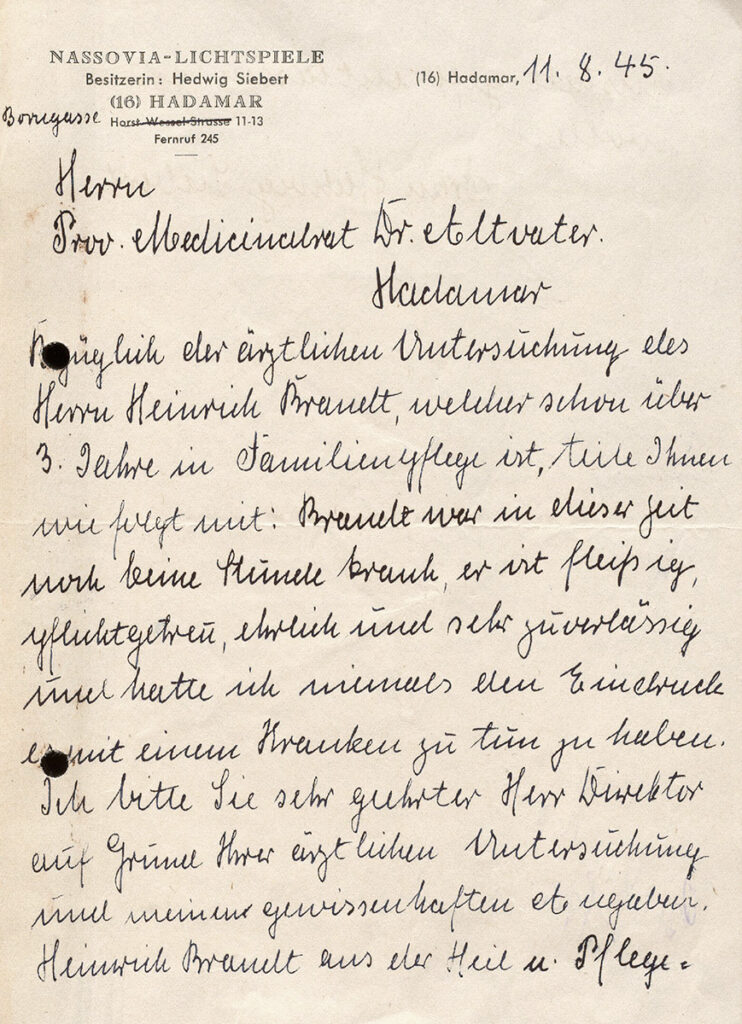 NASSOVIA-LICHTSPIELE
Besitzerin: Hedwig Siebert
(16) HADAMAR
Borngasse Horst-Wessel-Strasse 11-13
Fernruf 245
(16) Hadamar, 11. 8. 45.
Herrn
Prov. Medicinalrat Dr. Altvater.
Hadamar
Bezüglich der ärztlichen Untersuchung des
Herrn Heinrich Brandt, welcher schon über
3. Jahre in Familienpflege ist, teile Ihnen
wie folgt mit: Brandt war in dieser Zeit
noch keine Stunde krank, er ist fleißig,
pflichtgetreu, ehrlich und sehr zuverlässig
und hatte ich niemals den Eindruck
es mit einem Kranken zu tun zu haben.
Ich bitte Sie sehr geehrter Herr Direktor
auf Grund Ihrer ärztlichen Untersuchung
und meinen gewissenhaften Angaben.
Heinrich Brandt aus der Heil u. Pflege=